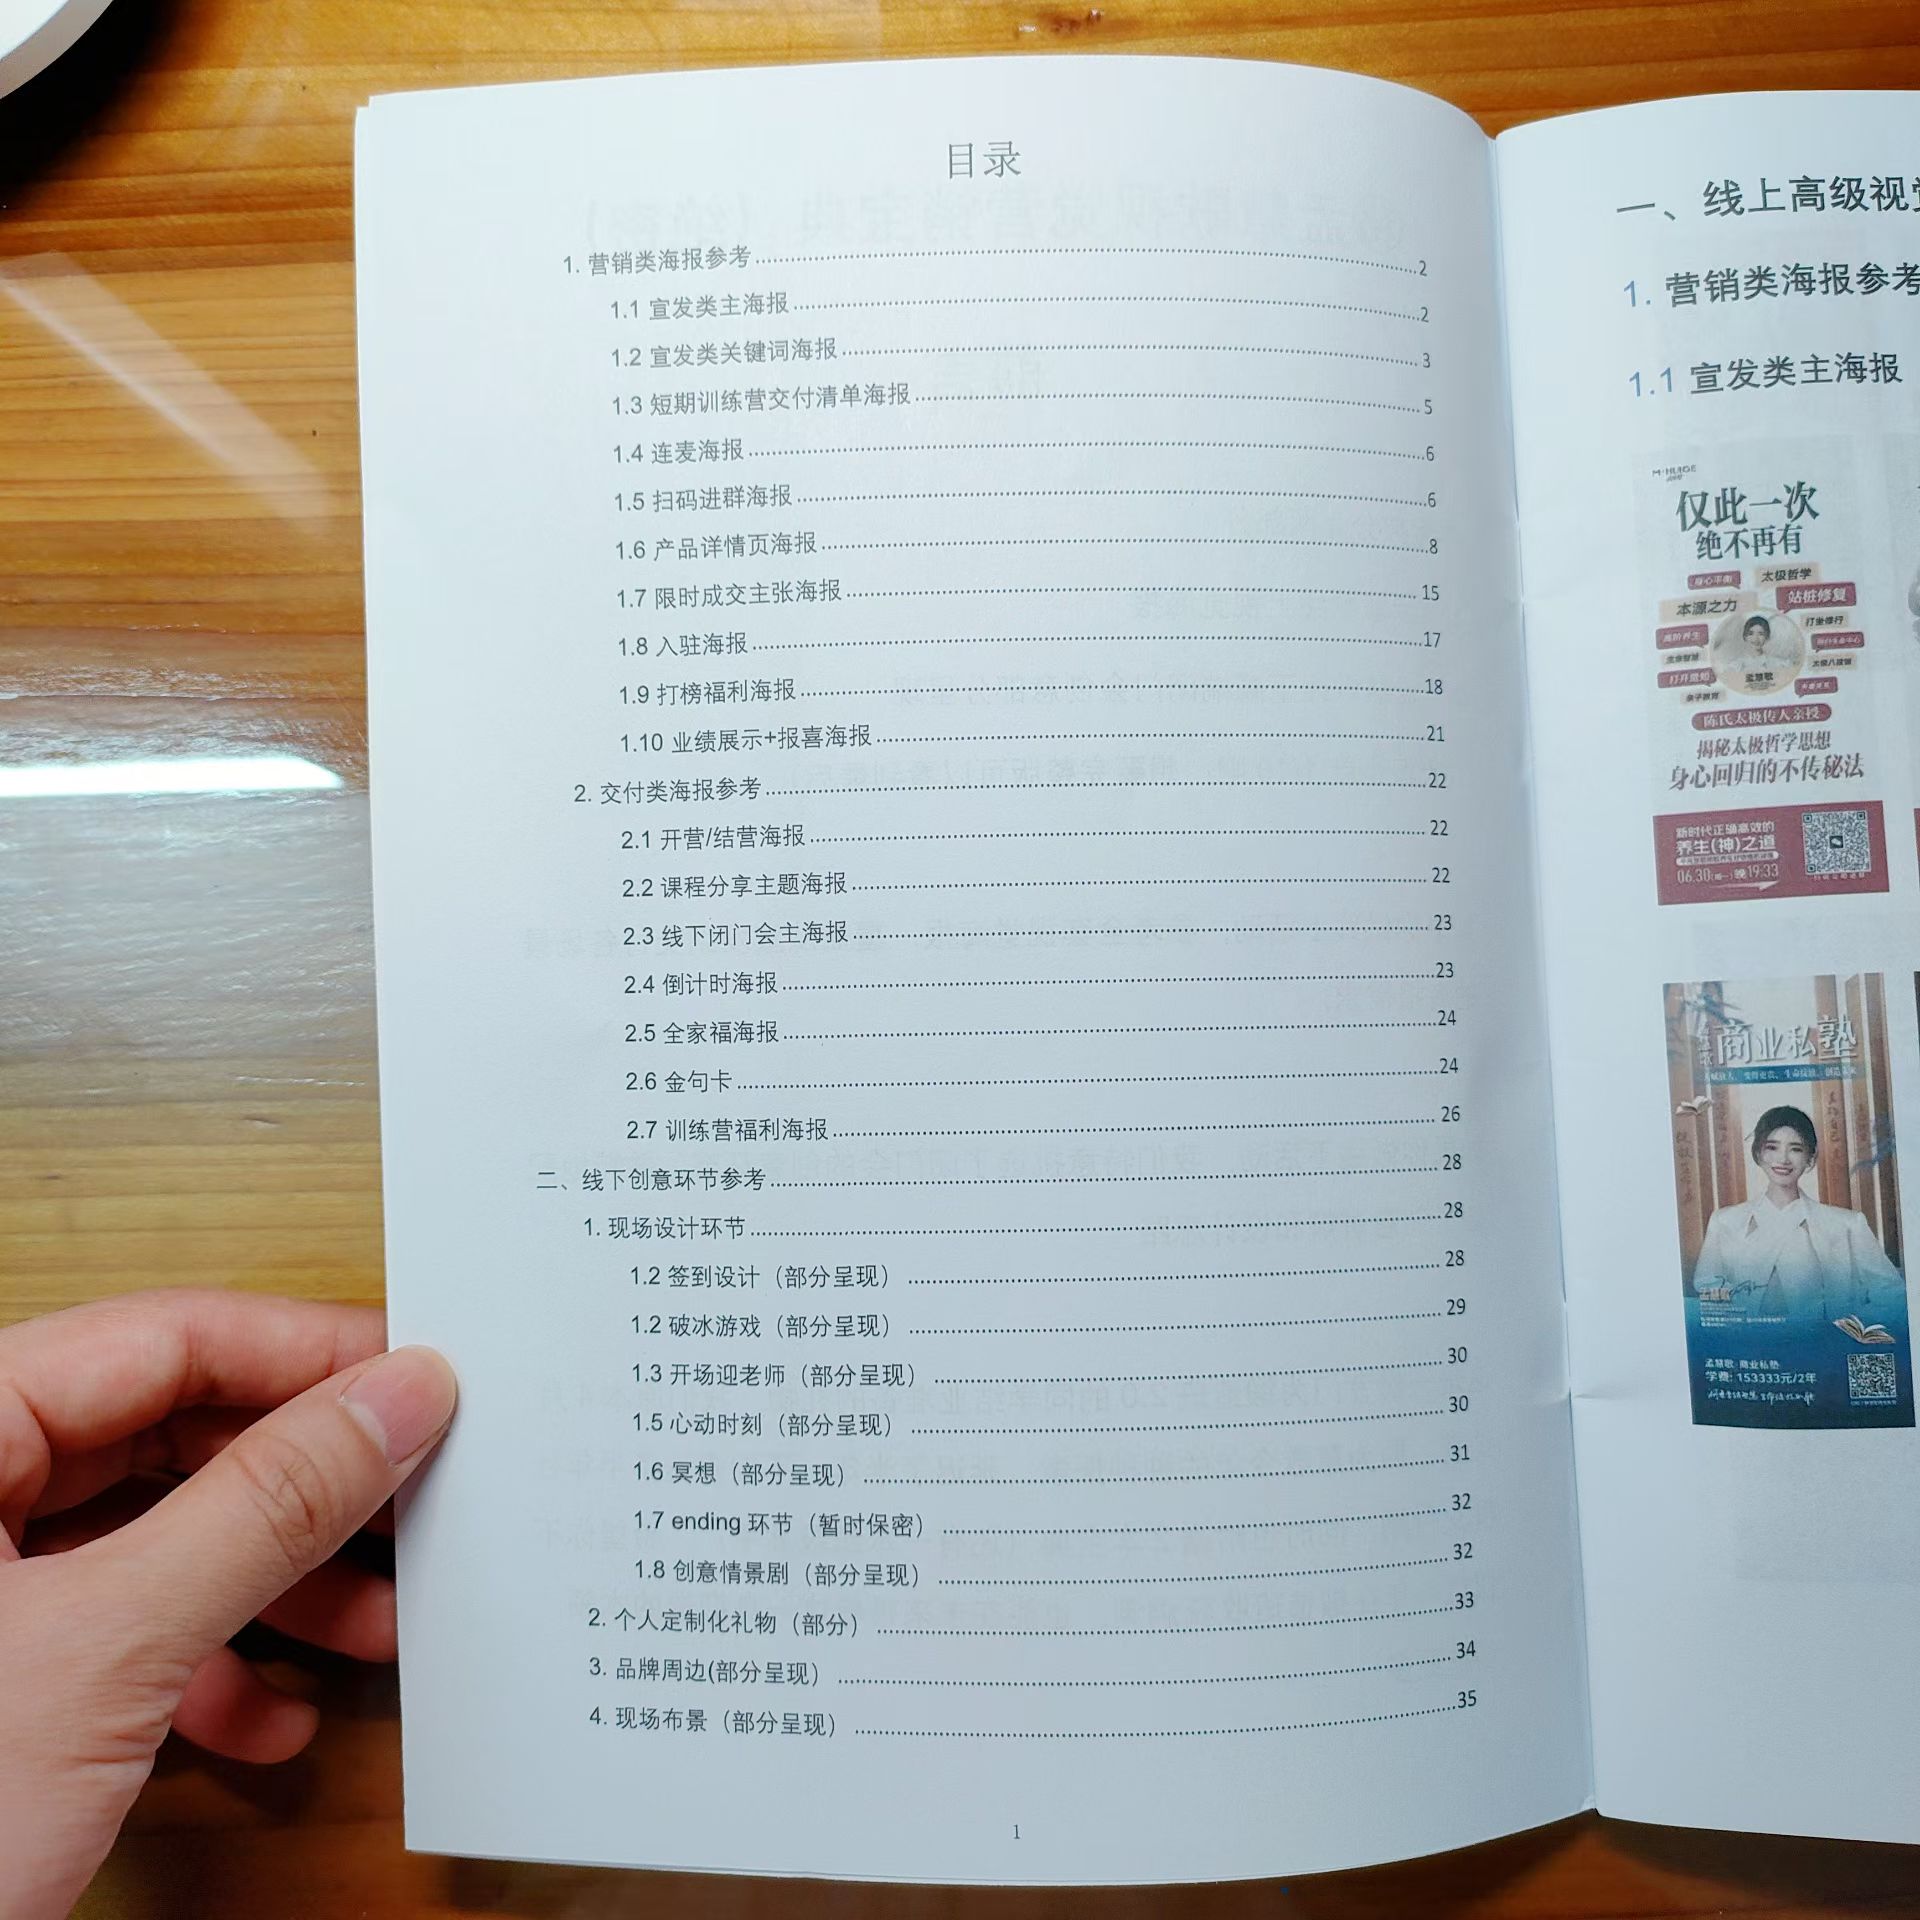 目录
1. 营销类海报参考 2
1.1 宣发类主海报 2
1.2 宣发类关键词海报 3
1.3 短期训练营交付清单海报 5
1.4 连麦海报 6
1.5 扫码进群海报 6
1.6 产品详情页海报 8
1.7 限时成交主张海报 15
1.8 入驻海报 17
1.9 打榜福利海报 18
1.10 业绩展示+报喜海报 21
2. 交付类海报参考 22
2.1 开营/结营海报 22
2.2 课程分享主题海报 22
2.3 线下闭门会主海报 23
2.4 倒计时海报 23
2.5 全家福海报 24
2.6 金句卡 24
2.7 训练营福利海报 26
二、线下创意环节参考 28
1. 现场设计环节 28
1.2 签到设计（部分呈现） 28
1.2 破冰游戏（部分呈现） 29
1.3 开场迎老师（部分呈现） 30
1.5 心动时刻（部分呈现） 30
1.6 冥想（部分呈现） 31
1.7 ending 环节（暂时保密） 32
1.8 创意情景剧（部分呈现） 32
2. 个人定制化礼物（部分） 33
3. 品牌周边(部分呈现） 34
4. 现场布景（部分呈现） 35
1
一、线上高级视
1. 营销类海报参考
1.1 宣发类主海报
仅此一次
绝不再有
身心平衡
太极哲学
本源之力
站桩修复
打坐修行
高阶养生
打开觉知
孟慧歌
亲子教育
陈氏太极传人亲授
揭秘太极哲学思想
身心回归的不传秘法
新时代正确高效的
养生(神)之道
06.30(周一)晚19:33
商业私塾
孟慧歌
孟慧歌 商业私塾
学费: 153333元/2年